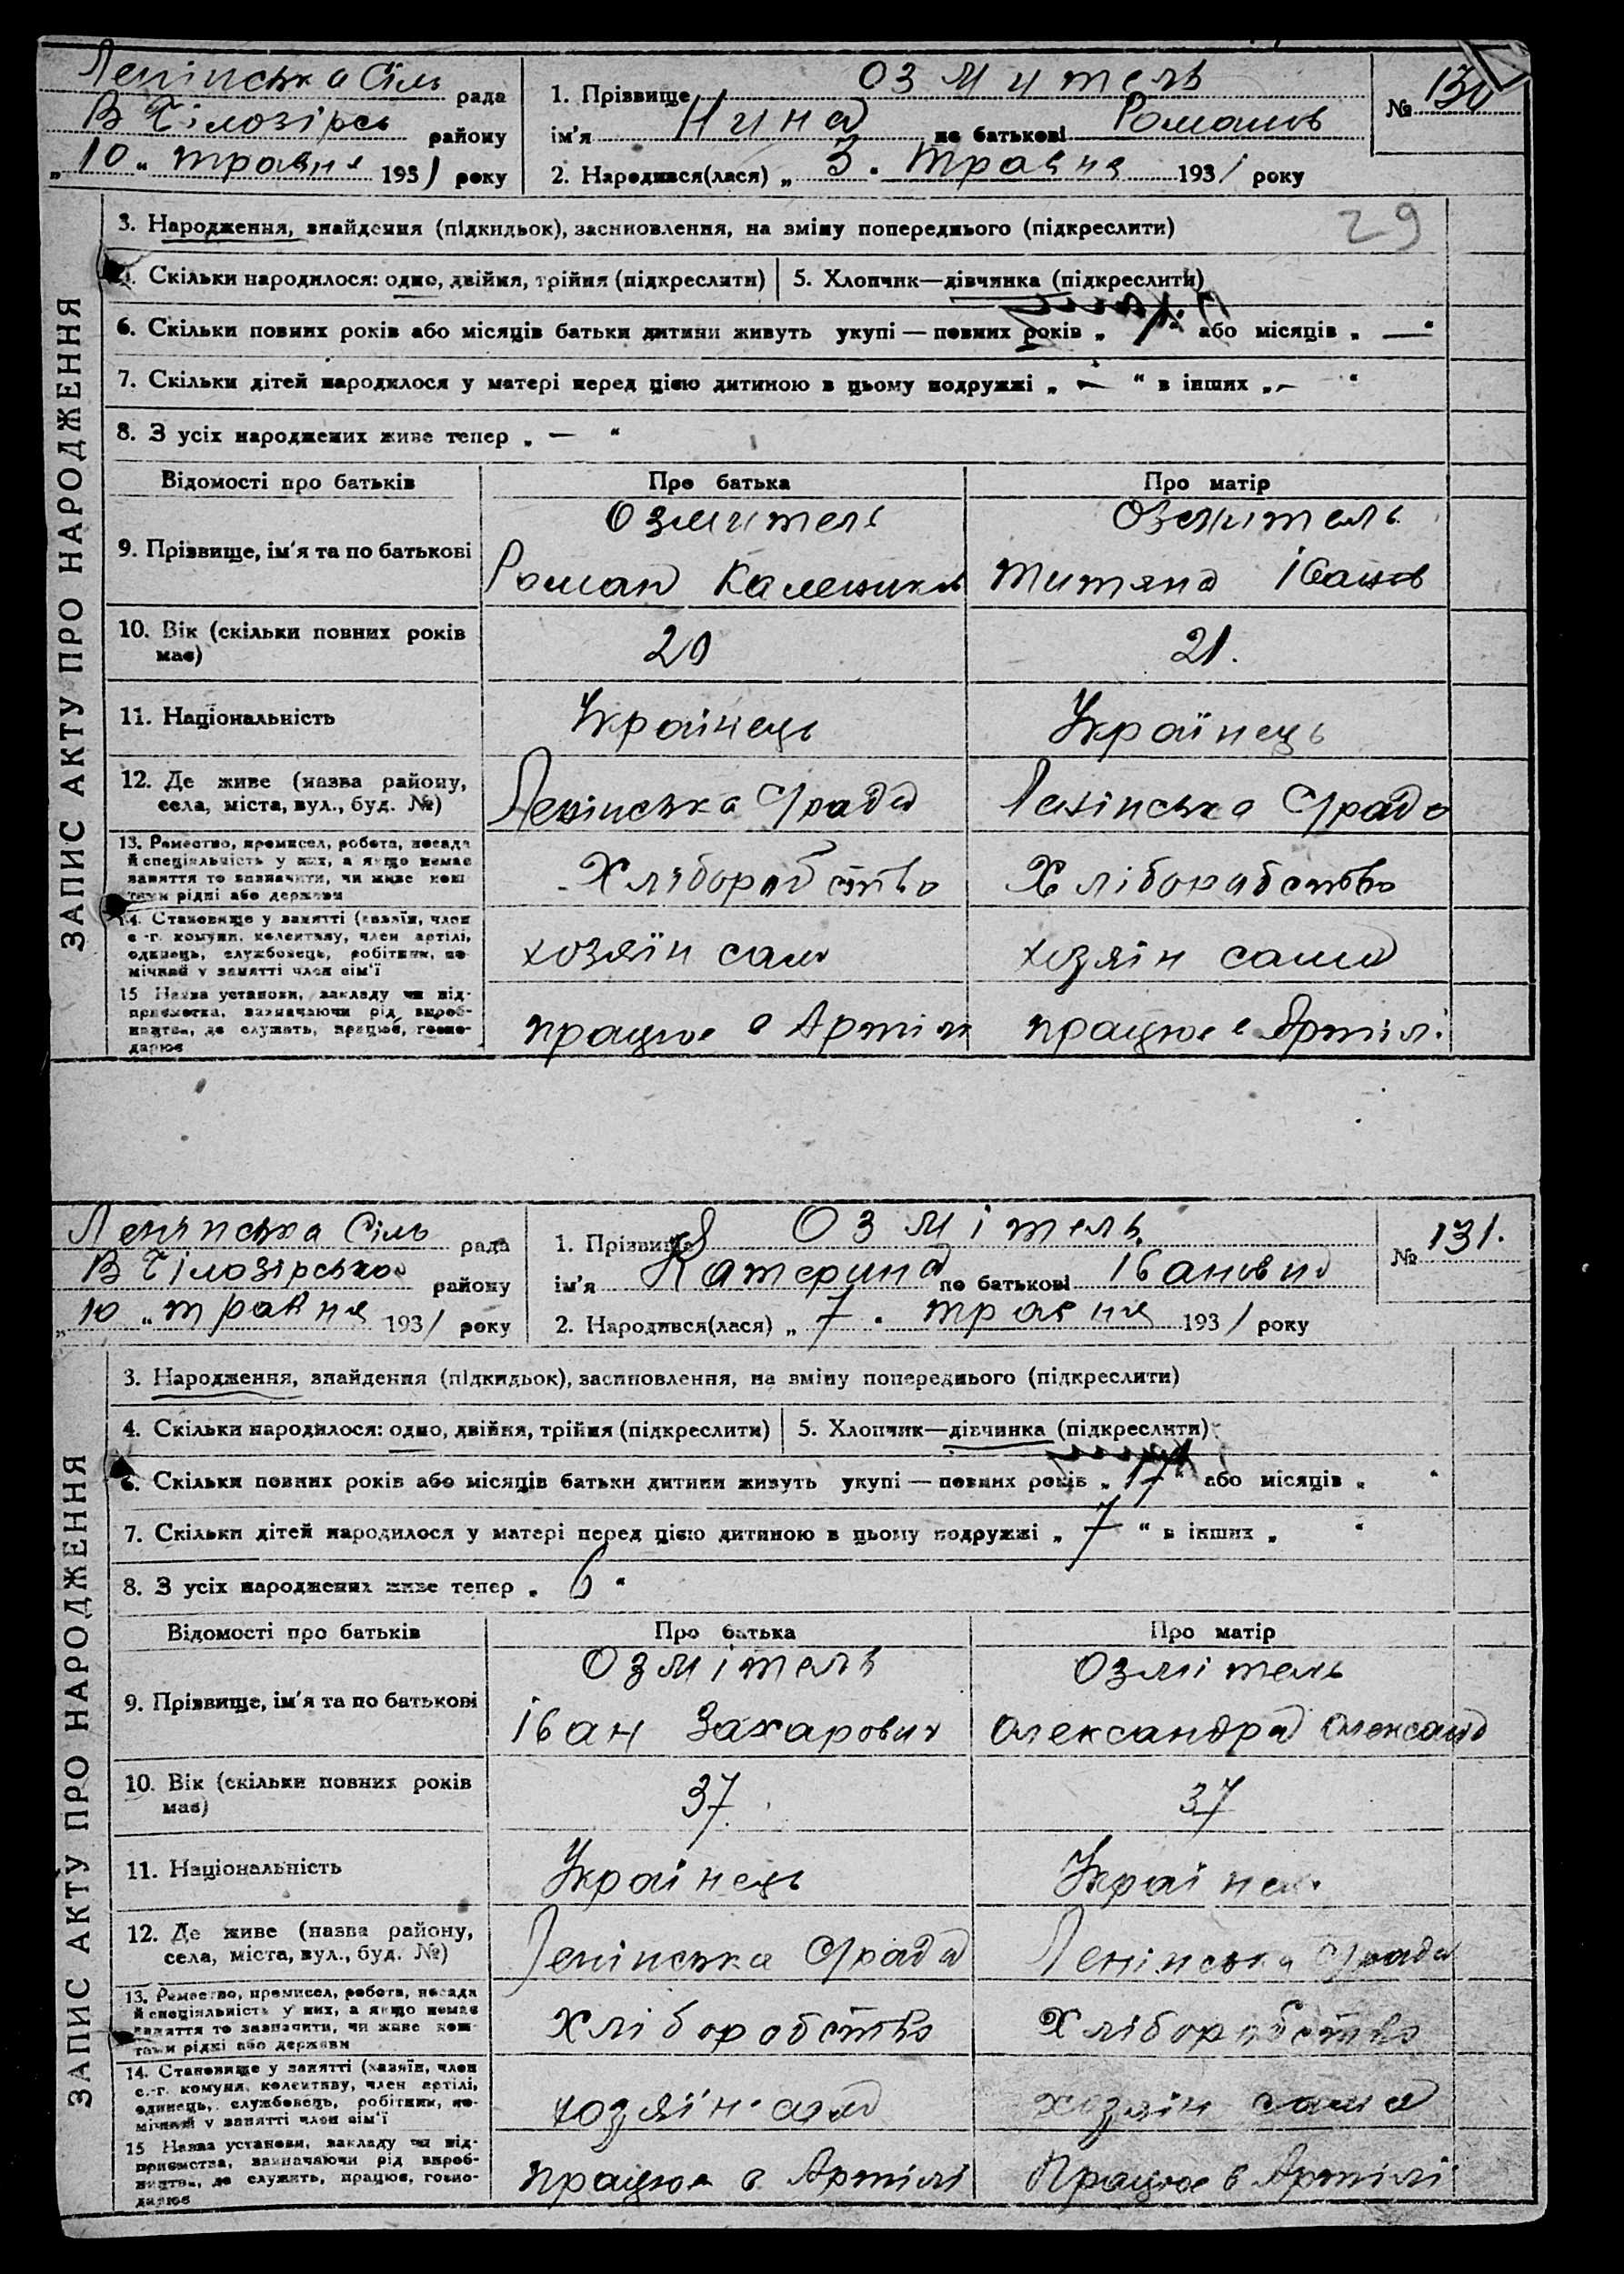 Ленінська Сіль рада
В Білозірсь району
„10" травня 1931 року
1. Прізвище Озмитель
ім'я Нина по батькові Романов
2. Народився(лася) „3" травня 1931 року
№ 130
29
ЗАПИС АКТУ ПРО НАРОДЖЕННЯ
3. Народження, знайдення (підкидьок), засиновлення, на зміну попереднього (підкреслити)
4. Скільки народилося: одно, двійня, трійня (підкреслити) 5. Хлопчик—дівчинка (підкреслити)
6. Скільки повних років або місяців батьки дитини живуть укупі — повних років „1" або місяців „—"
7. Скільки дітей народилося у матері перед цією дитиною в цьому подружжі „—" в інших „—"
8. З усіх народжених живе тепер „—"
Відомості про батьків Про батька Про матір
9. Прізвище, ім'я та по батькові Озмитель Озмитель
Роман Калеников Титяна Іванов
10. Вік (скільки повних років має) 20 21.
11. Національність Українець Українець
12. Де живе (назва району, села, міста, вул., буд. №) Ленінська С/рада Ленінська С/рада
13. Ремество, промисел, робота, посада
й спеціяльність у них, а якщо немає
заняття то зазначити, чи живе кош-
тами рідні або держави Хліборобство Хліборобство
14. Становище у занятті (хазяїн, член
с.-г. комуни, колективу, член артілі,
одинець, службовець, робітник, по-
мічний у занятті член сім'ї хозяїн сам хозяін сама
15 Назва установи, закладу чи під-
приємства, зазначаючи рід вироб-
ництва, де служить, працює, госпо-
дарює працює в Артіли працює в Артілі
Ленінська Сіль рада
В Білозірської району
„10" травня 1931 року
1. Прізвище Озмітель
ім'я Катерина по батькові Іванович
2. Народився(лася) „7" травня 1931 року
№ 131.
ЗАПИС АКТУ ПРО НАРОДЖЕННЯ
3. Народження, знайдення (підкидьок), засиновлення, на зміну попереднього (підкреслити)
4. Скільки народилося: одно, двійня, трійня (підкреслити) 5. Хлопчик—дівчинка (підкреслити)
6. Скільки повних років або місяців батьки дитини живуть укупі — повних років „17" або місяців „ "
7. Скільки дітей народилося у матері перед цією дитиною в цьому подружжі „7" в інших „ "
8. З усіх народжених живе тепер „6"
Відомості про батьків Про батька Про матір
9. Прізвище, ім'я та по батькові Озмітель Озмітель
Іван Захарович Олександра Олександ
10. Вік (скільки повних років має) 37 37
11. Національність Українець Українец
12. Де живе (назва району, села, міста, вул., буд. №) Ленінська С/рада Ленінська С/рада
13. Ремество, промисел, робота, посада
й спеціяльність у них, а якщо немає
заняття то зазначити, чи живе кош-
тами рідні або держави Хліборобство Хліборобство
14. Становище у занятті (хазяїн, член
с.-г. комуни, колективу, член артілі,
одинець, службовець, робітник, по-
мічний у занятті член сім'ї хозяїн сам хозяін сама
15 Назва установи, закладу чи під-
приємства, зазначаючи рід вироб-
ництва, де служить, працює, госпо-
дарює працює в Артілі Працює в Артілі